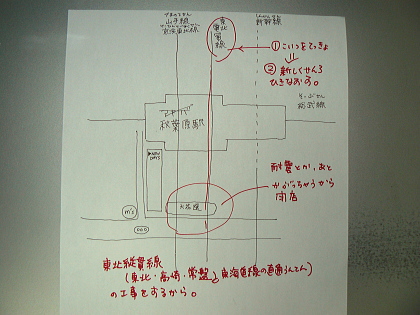 やまのてせん
山手線
けいひんとうほくせん
京浜東北線
東北貨線
しんかんせん
新幹線
① こいつをてっきょ
② 新しくせんろ
ひきなおす。
そうぶせん
総武線
アキバ
秋葉原駅
NEW
DAYS
耐震とか、あと
かぶっちゃうから
閉店
m's
東北縦貫線
(東北・高崎・常盤と東海道線の直通うんてん)
の工事をするから。